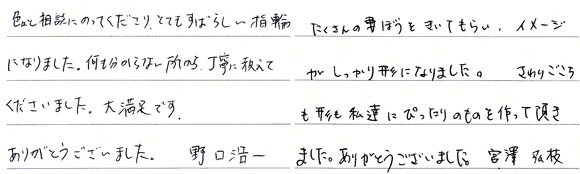 色々と相談にのってくださり、とてもすばらしい指輪
になりました。何も分からない所から、丁寧に教えて
くださいました。大満足です。
ありがとうございました。 野口浩一
たくさんの要ぼうをきいてもらい、イメージ
がしっかり形になりました。 さわりごこち
も形も私達にぴったりのものを作って頂き
ました。ありがとうございました。 宮澤 弘枝